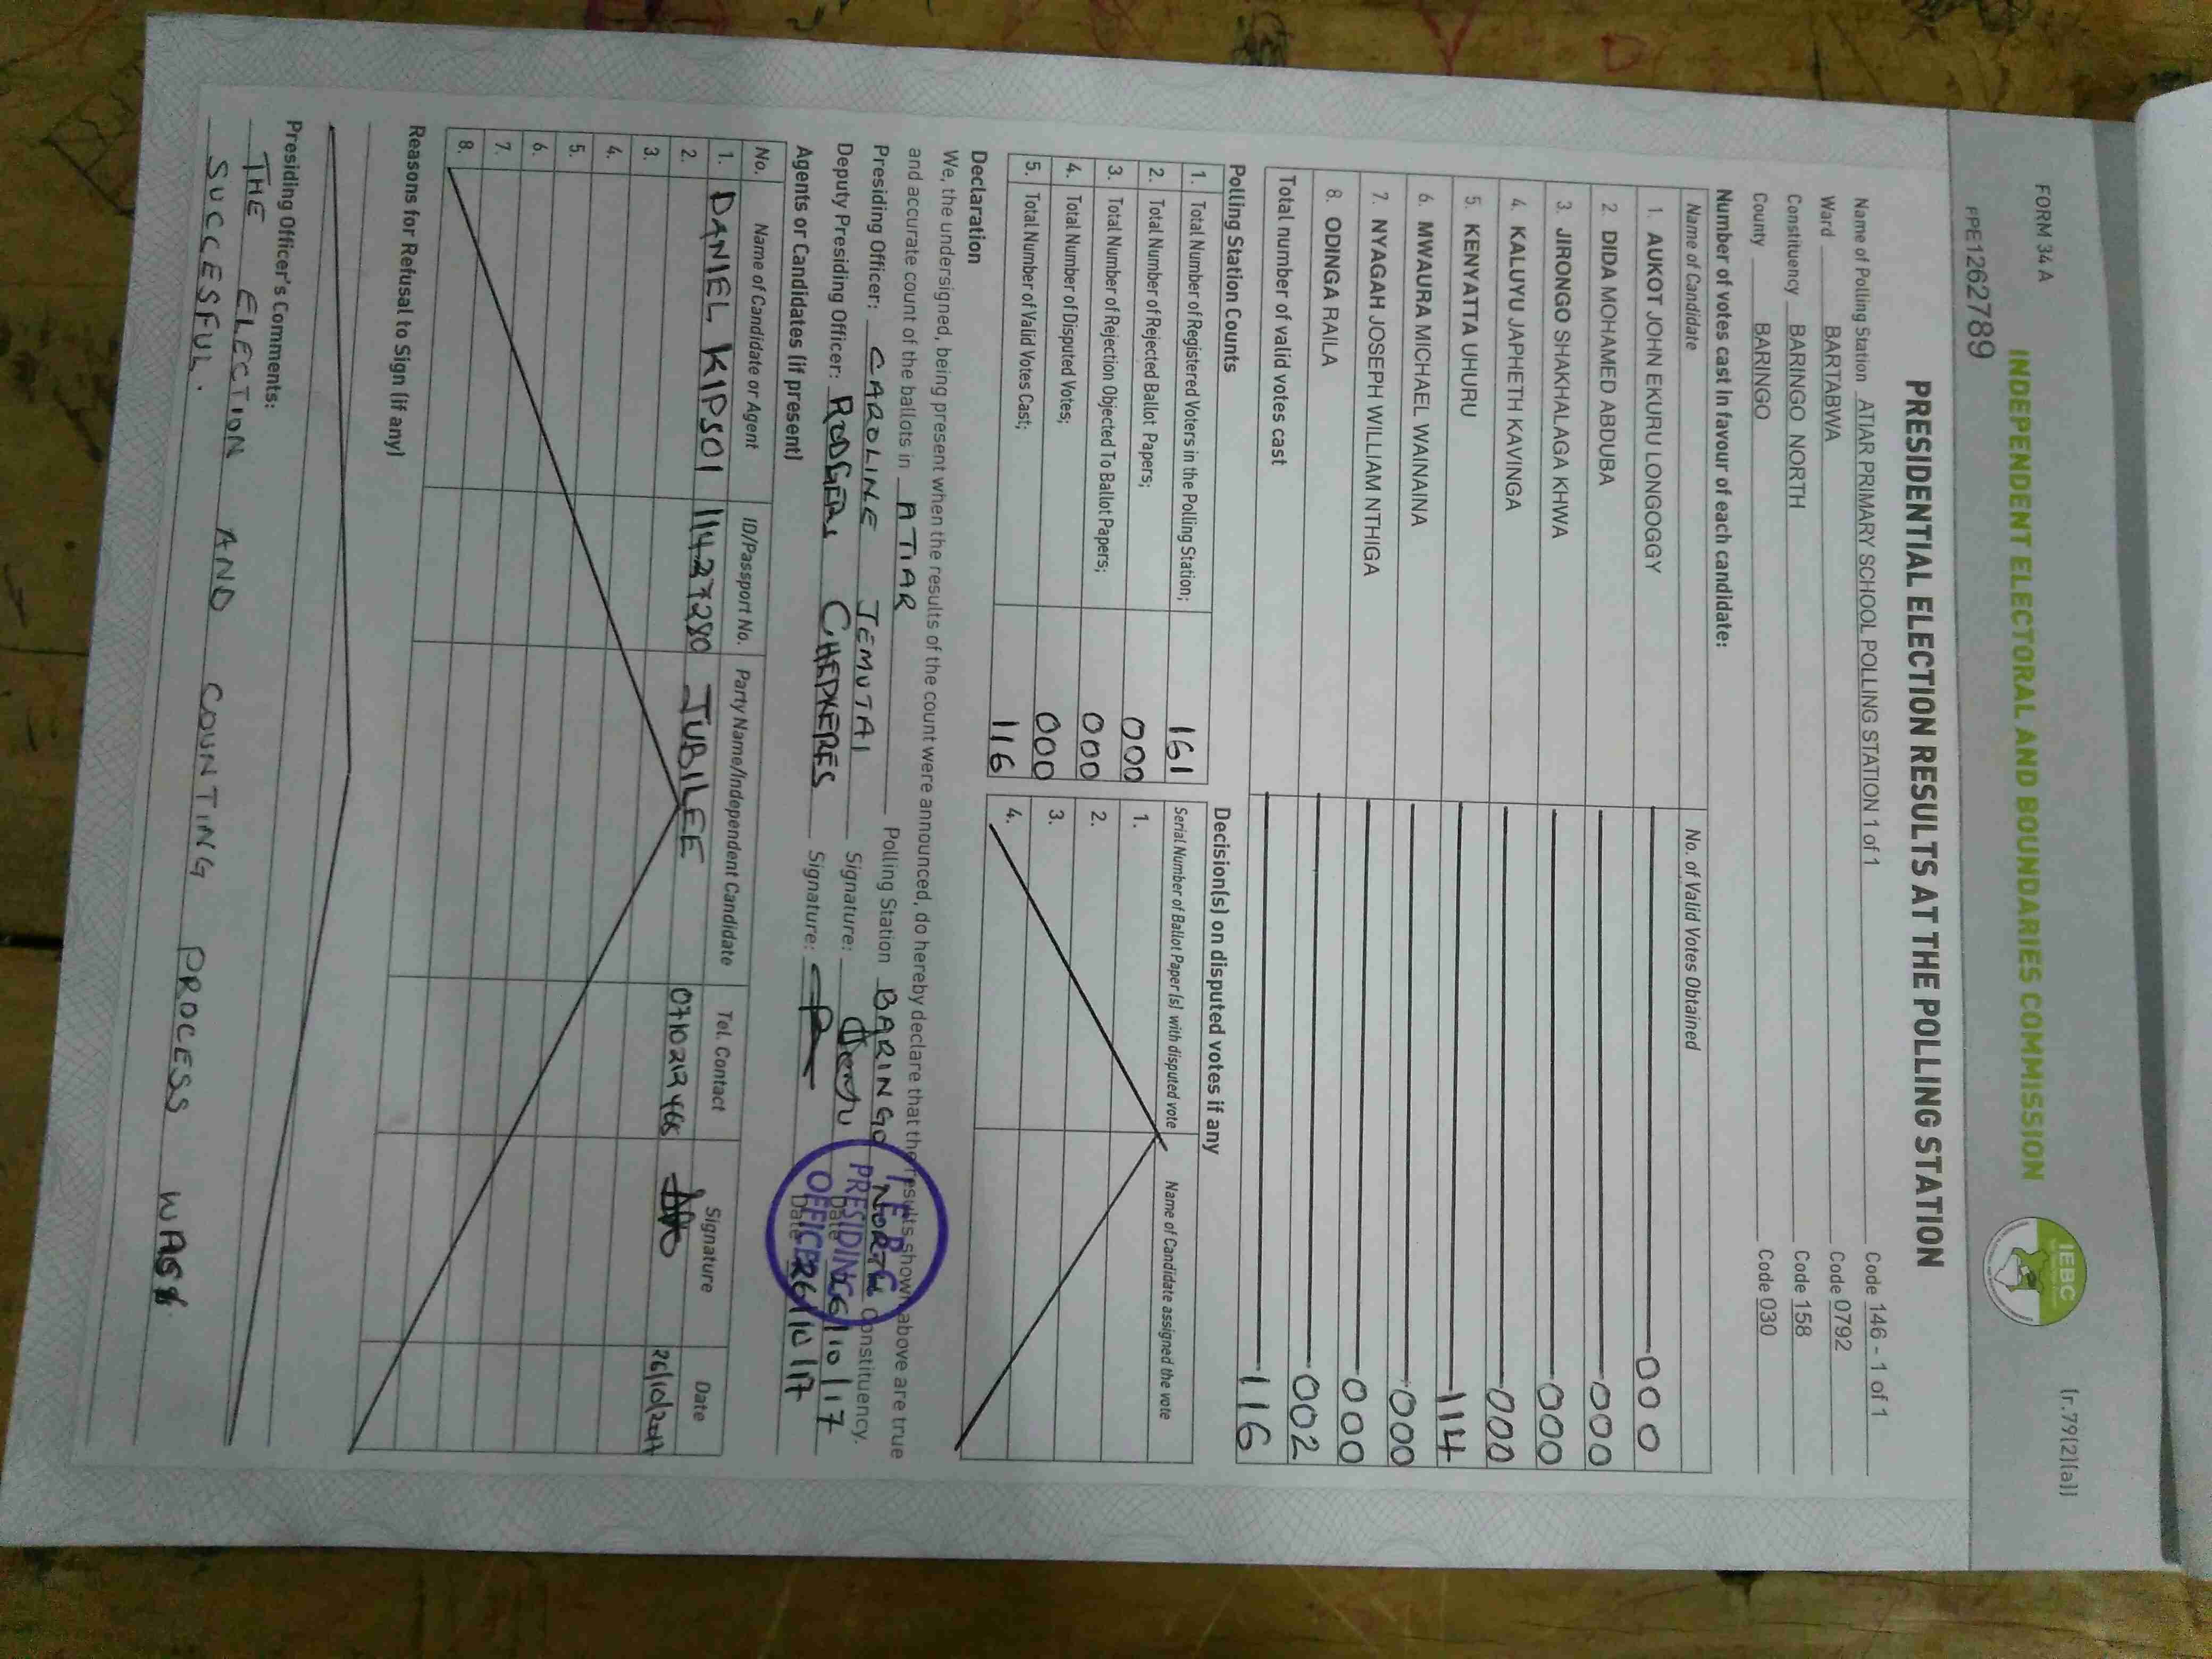 FORM 34 A
(r.79(2)(a))
INDEPENDENT ELECTORAL AND BOUNDARIES COMMISSION
IEBC
PPE1262789
PRESIDENTIAL ELECTION RESULTS AT THE POLLING STATION
Name of Polling Station ATIAR PRIMARY SCHOOL POLLING STATION 1 of 1 Code 146 - 1 of 1
Ward BARTABWA Code 0792
Constituency BARINGO NORTH Code 158
County BARINGO Code 030
Number of votes cast in favour of each candidate:
Name of Candidate No. of Valid Votes Obtained
1. AUKOT JOHN EKURU LONGOGGY 000
2. DIDA MOHAMED ABDUBA 000
3. JIRONGO SHAKHALAGA KHWA 000
4. KALUYU JAPHETH KAVINGA 000
5. KENYATTA UHURU 114
6. MWAURA MICHAEL WAINAINA 000
7. NYAGAH JOSEPH WILLIAM NTHIGA 000
8. ODINGA RAILA 002
Total number of valid votes cast 116
Polling Station Counts
1. Total Number of Registered Voters in the Polling Station; 161
2. Total Number of Rejected Ballot Papers; 000
3. Total Number of Rejection Objected To Ballot Papers; 000
4. Total Number of Disputed Votes; 000
5. Total Number of Valid Votes Cast; 116
Decision(s) on disputed votes if any
Serial Number of Ballot Paper (s) with disputed vote Name of Candidate assigned the vote
1.
2.
3.
4.
Declaration
We, the undersigned, being present when the results of the count were announced, do hereby declare that the results shown above are true
and accurate count of the ballots in ATIAR Polling Station BARINGO NORTH Constituency.
Presiding Officer: CAROLINE JEMUTAI Signature: Date 26/10/17
Deputy Presiding Officer: RODGERS CHEPKERES Signature: Date 26/10/17
IEBC
PRESIDING
OFFICER
Agents or Candidates (if present)
No. Name of Candidate or Agent ID/Passport No. Party Name/Independent Candidate Tel. Contact Signature Date
1. DANIEL KIPSOI 11427280 JUBILEE 0710217466 26/10/2017
2.
3.
4.
5.
6.
7.
8.
Reasons for Refusal to Sign (if any)
Presiding Officer's Comments:
THE ELECTION AND COUNTING PROCESS WAS
SUCCESFUL.